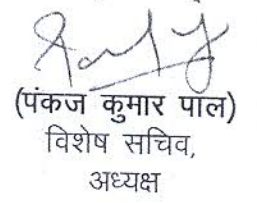 (पंकज कुमार पाल)
विशेष सचिव,
अध्यक्ष